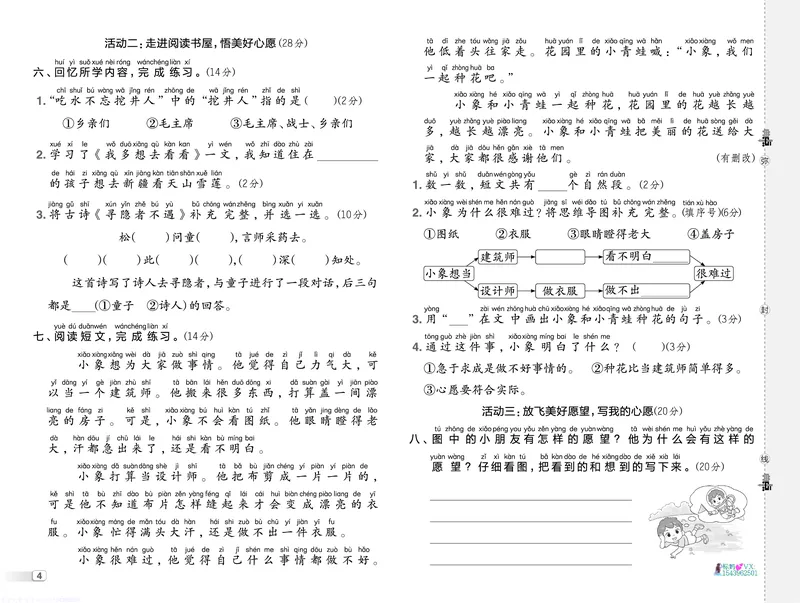 活动二：走进阅读书屋，悟美好心愿（28分）
huí yì suǒ xué nèi róng  wán chéng liàn xí
六、回忆所学内容，完成练习。（14分）
chī shuǐ bú wàng wā jǐng rén  zhōng de  wā jǐng rén  zhǐ de shì
1.“吃水不忘挖井人”中的“挖井人”指的是（　　）（2分）
①乡亲们　　②毛主席　　③毛主席、战士、乡亲们
xué xí le  wǒ duō xiǎng qù kàn kan  yì wén  wǒ zhī dào zhù zài
2.学习了《我多想去看看》一文，我知道住在__________
de hái zi xiǎng qù xīn jiāng kàn tiān shān xuě lián
的孩子想去新疆看天山雪莲。（2分）
jiāng gǔ shī  xún yǐn zhě bú yù  bǔ chōng wán zhěng bìng xuǎn yi xuǎn
3.将古诗《寻隐者不遇》补充完整，并选一选。（10分）
松（　　）问童（　　），言师采药去。
（　　）（　　）此（　　）（　　），（　　）深（　　）知处。
这首诗写了诗人去寻隐者，与童子进行了一段对话，后三句
都是____（①童子　②诗人）的回答。
yuè dú duǎn wén  wán chéng liàn xí
七、阅读短文，完成练习。（14分）
xiǎo xiàng xiǎng wèi dà jiā zuò shì qing  tā jué de zì jǐ lì qi dà  kě
小象想为大家做事情。他觉得自己力气大，可
yǐ dāng yí gè jiàn zhù shī  tā bān lái hěn duō dōng xi  dǎ suàn gài yì jiān piào
以当一个建筑师。他搬来很多东西，打算盖一间漂
liang de fáng zi  kě shì  xiǎo xiàng bú huì kàn tú zhǐ  tā yǎn jing dèng de lǎo
亮的房子。可是，小象不会看图纸。他眼睛瞪得老
dà  hàn dōu jí chū lái le  hái shi kàn bù míng bai
大，汗都急出来了，还是看不明白。
xiǎo xiàng dǎ suàn dāng shè jì shī  tā bǎ bù jiǎn chéng yí piàn yí piàn de
小象打算当设计师。他把布剪成一片一片的，
kě shì tā bù zhī dào bù piàn zěn yàng féng qǐ lái cái huì biàn chéng piào liang de yī
可是他不知道布片怎样缝起来才会变成漂亮的衣
fu  xiǎo xiàng máng de mǎn tóu dà hàn  hái shi zuò bù chū yí jiàn yī fu
服。小象忙得满头大汗，还是做不出一件衣服。
xiǎo xiàng hěn nán guò  tā jué de zì jǐ shén me shì qing dōu zuò bù hǎo
小象很难过，他觉得自己什么事情都做不好。
4
tā dī zhe tóu wǎng jiā zǒu  huā yuán lǐ de xiǎo qīng wā hǎn  xiǎo xiàng  wǒ men
他低着头往家走。花园里的小青蛙喊：“小象，我们
yì qǐ zhòng huā ba
一起种花吧。”
xiǎo xiàng hé xiǎo qīng wā yì qǐ zhòng huā  huā yuán lǐ de huā yuè zhǎng yuè
小象和小青蛙一起种花，花园里的花越长越
duō  yuè zhǎng yuè piào liang  xiǎo xiàng hé xiǎo qīng wā bǎ měi lì de huā sòng gěi dà
多，越长越漂亮。小象和小青蛙把美丽的花送给大
jiā  dà jiā dōu hěn gǎn xiè tā men
家，大家都很感谢他们。　　（有删改）
shǔ yi shǔ  duǎn wén gòng yǒu  gè zì rán duàn
1.数一数，短文共有____个自然段。（2分）
xiǎo xiàng wèi shén me hěn nán guò  jiāng sī wéi dǎo tú bǔ chōng wán zhěng  tián xù hào
2.小象为什么很难过？将思维导图补充完整。（填序号）（6分）
①图纸　　②衣服　　③眼睛瞪得老大　　④盖房子
建筑师　　看不明白______
小象想当　　很难过
设计师　做衣服　做不出______
yòng  zài wén zhōng huà chū xiǎo xiàng hé xiǎo qīng wā zhòng huā de jù zi
3.用“____”在文中画出小象和小青蛙种花的句子。（3分）
tōng guò zhè jiàn shì  xiǎo xiàng míng bai le shén me
4.通过这件事，小象明白了什么？（　　）（3分）
①急于求成是做不好事情的。　②种花比当建筑师简单得多。
③心愿要符合实际。
活动三：放飞美好愿望，写我的心愿（20分）
tú zhōng de xiǎo péng yǒu yǒu zěn yàng de yuàn wàng  tā wèi shén me huì yǒu zhè yàng de
八、图中的小朋友有怎样的愿望？他为什么会有这样的
yuàn wàng  zǐ xì kàn tú  bǎ kàn dào de hé xiǎng dào de xiě xià lái
愿望？仔细看图，把看到的和想到的写下来。（20分）
弥
封
线
VX:
1543962501